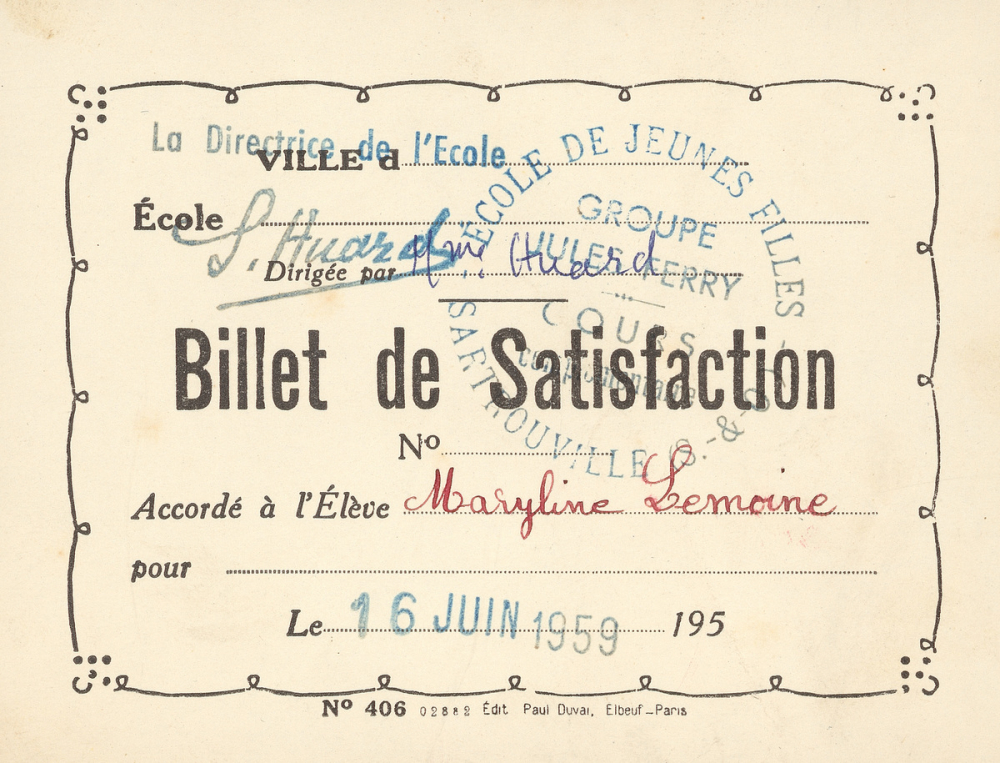 La Directrice de l'Ecole
VILLE d
École
S. Huard
Dirigée par Mme Huard
ÉCOLE DE JEUNES FILLES
GROUPE
JULES FERRY
COURS
SARTROUVILLE (S.-&-O.)
Billet de Satisfaction
Nº
Accordé à l'Élève Maryline Lemoine
pour
Le 16 JUIN 1959 195
Nº 406 02882 Édit. Paul Duval, Elbeuf-Paris